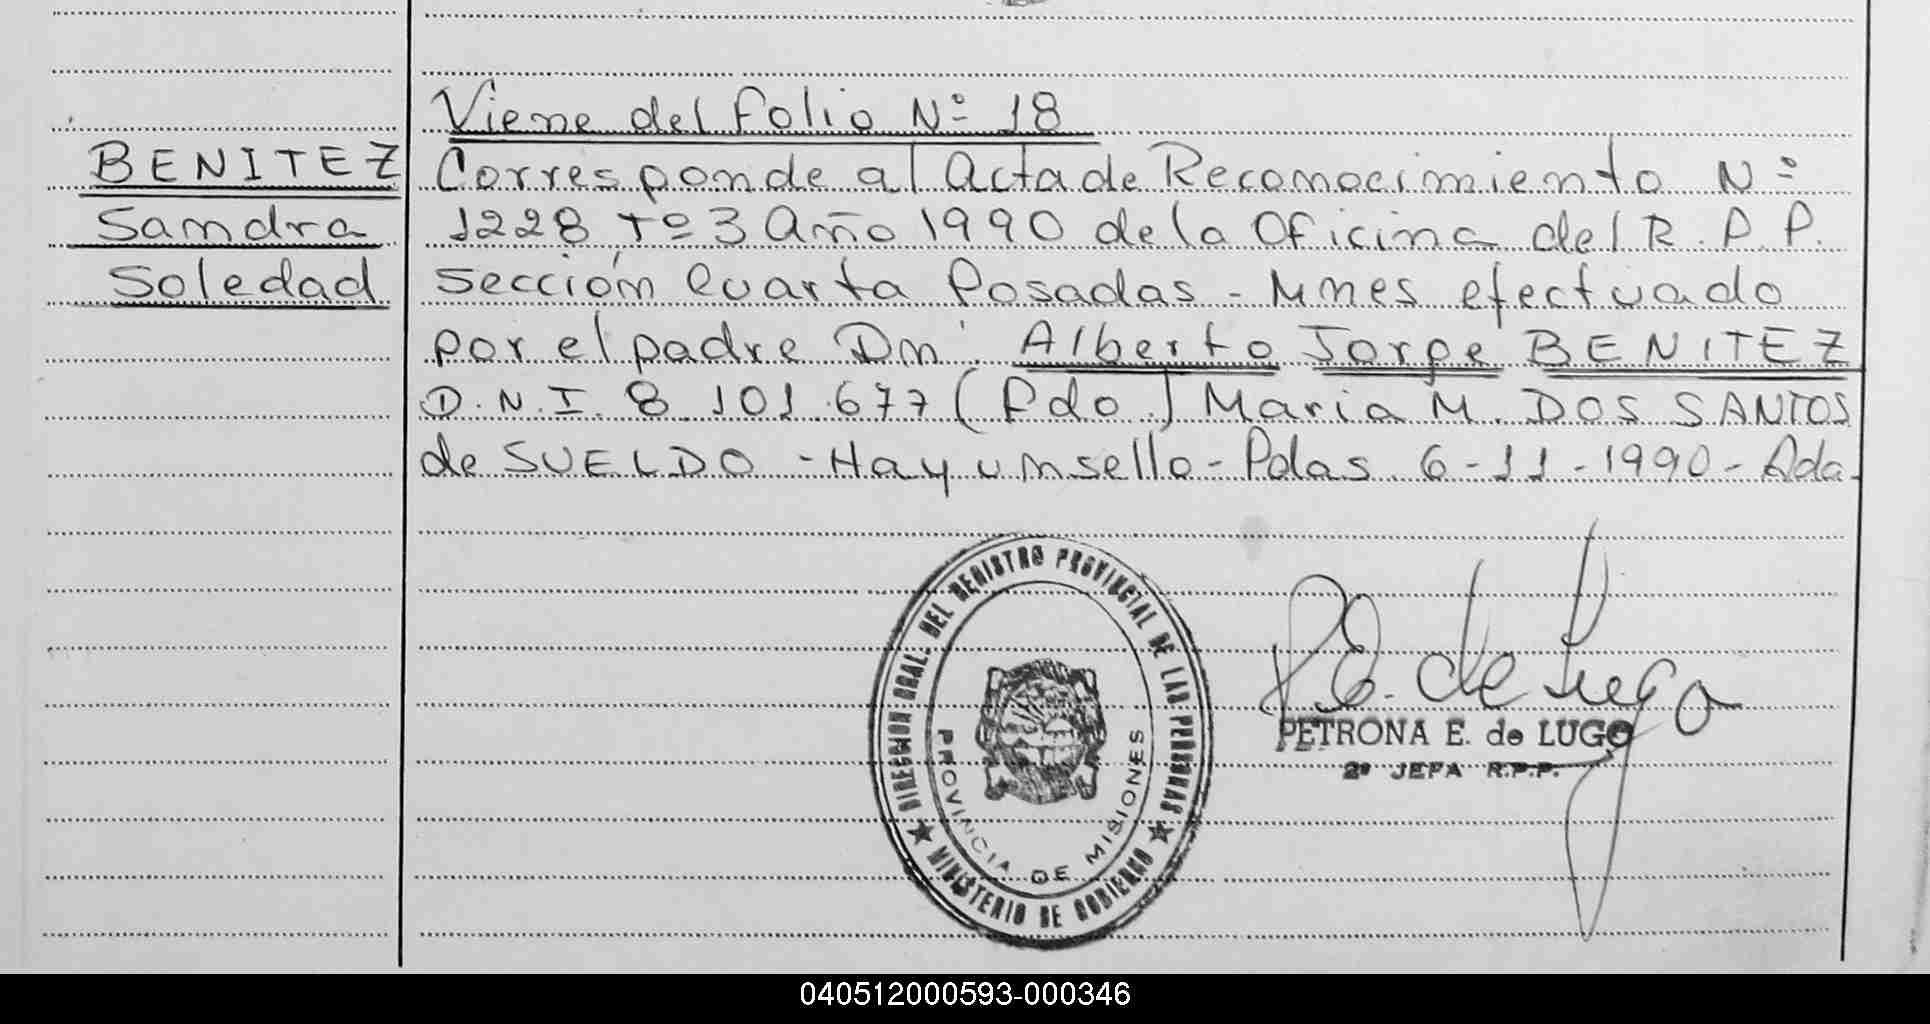 Viene del Folio Nº 18
BENITEZ
Sandra
Soledad
Corresponde al Acta de Reconocimiento Nº
1228 Tº 3 Año 1990 de la Oficina del R.P.P.
Sección Cuarta Posadas - Mnes efectuado
por el padre Dn. Alberto Jorge BENITEZ
D.N.I. 8.101.677 (Fdo.) Maria M. DOS SANTOS
de SUELDO - Hay un sello - Pdas 6-11-1990 - Ada.
DIRECCION GRAL. DEL REGISTRO PROVINCIAL DE LAS PERSONAS
MINISTERIO DE GOBIERNO
PROVINCIA DE MISIONES
P.E. de Lugo
PETRONA E. de LUGO
2º JEFA R.P.P.
040512000593-000346